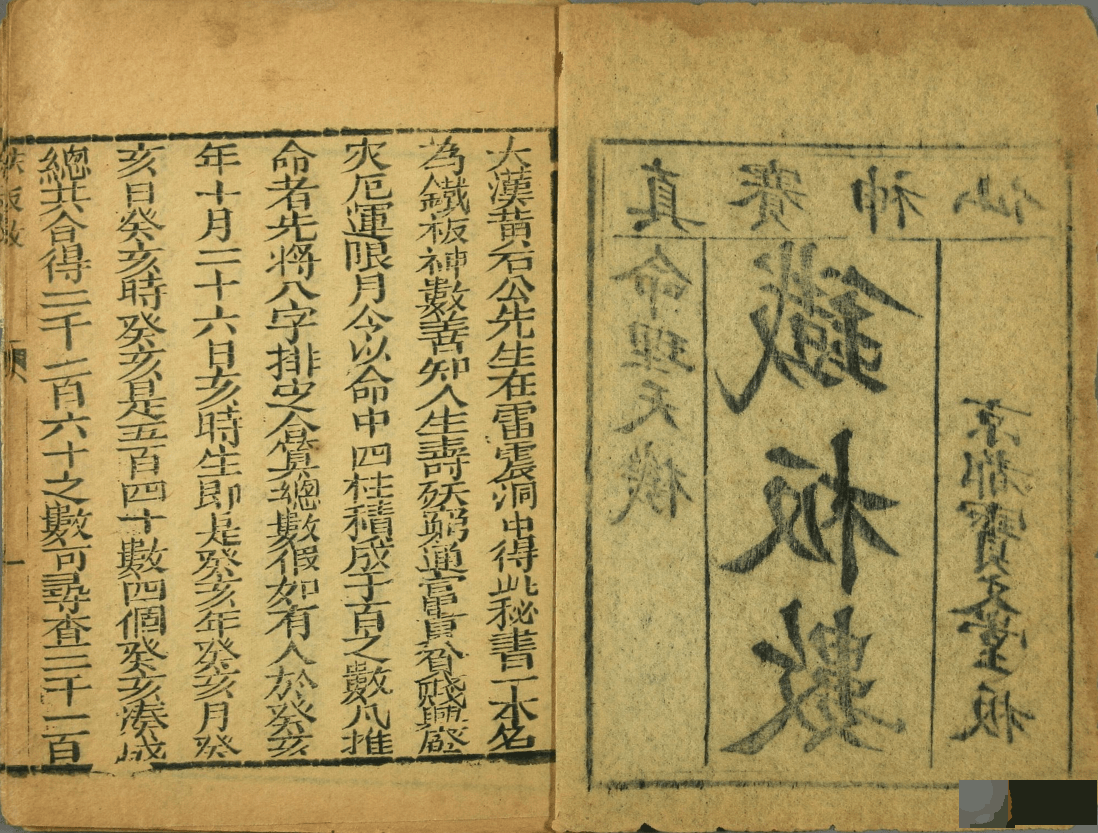 真賽神仙
命理天機
鐵板數
京都寶文堂板
大漢黄石公先生在雷震洞中得此秘書一本名
為鐵板神數善知人生壽殀窮通富貴貧賤興廢
灾厄運限月令以命中四柱積成千百之數凡推
命者先將八字排定合算總數假如有人於癸亥
年十月二十六日亥時生即是癸亥年癸亥月癸
亥日癸亥時癸亥是五百四十數四個癸亥湊成
總共合得二千二百六十之數可尋查二千一百
板數
一